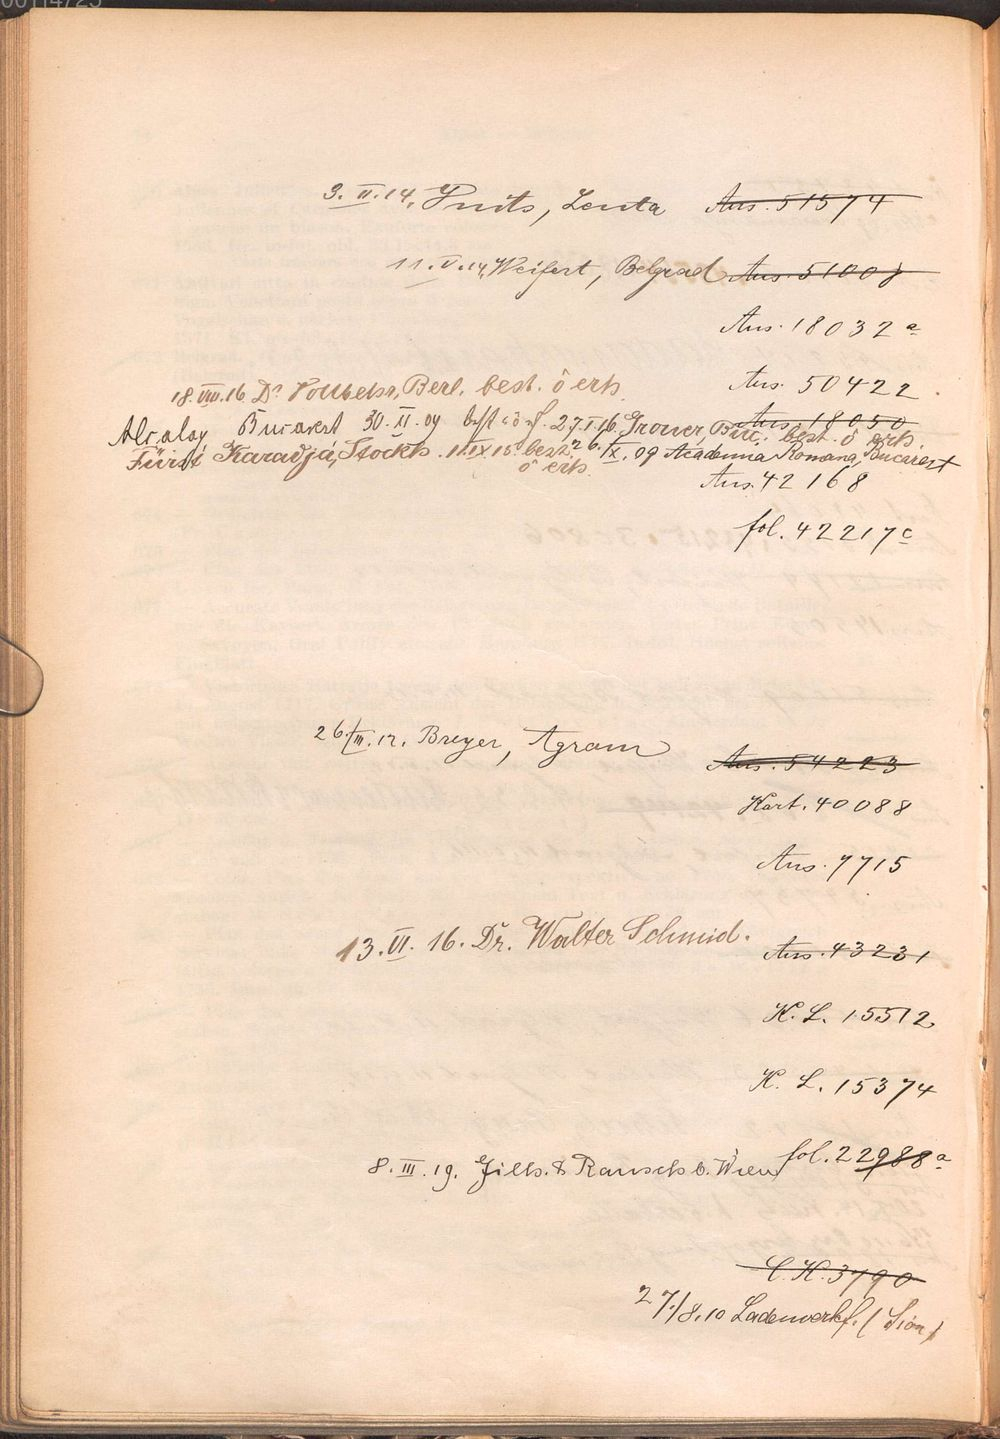 00114725
3. II. 14. Fruits, Zenta Aus. 51574
11. V. 14, Weifert, Belgrad Aus. 51008
Aus. 18032 a
Aus. 50422
18. VIII. 16 Dr Berl. best. ô erh.
Aus. 18050
Alcalay Bucarest 30. XI. 09 27. I. 16. Groner, Buc. best. ô erh.
Fürst Karadjá, Stockh. 11. IX 15 best. ô erh. 26./X. 09 Academia Romana, Bucarest
Aus. 42168
fol. 42217 c
26./III. 12. Breyer, Agram
Aus. 54223
Kart. 40088
Aus. 7715
13. VI. 16. Dr. Walter Schmid.
Aus. 43231
K. L. 15512
K. L. 15374
fol. 22988 a
8. III. 19. Gilh. & Ranschb. Wien
C. K. 3790
27./8. 10 Ladenverkf. (Sion)